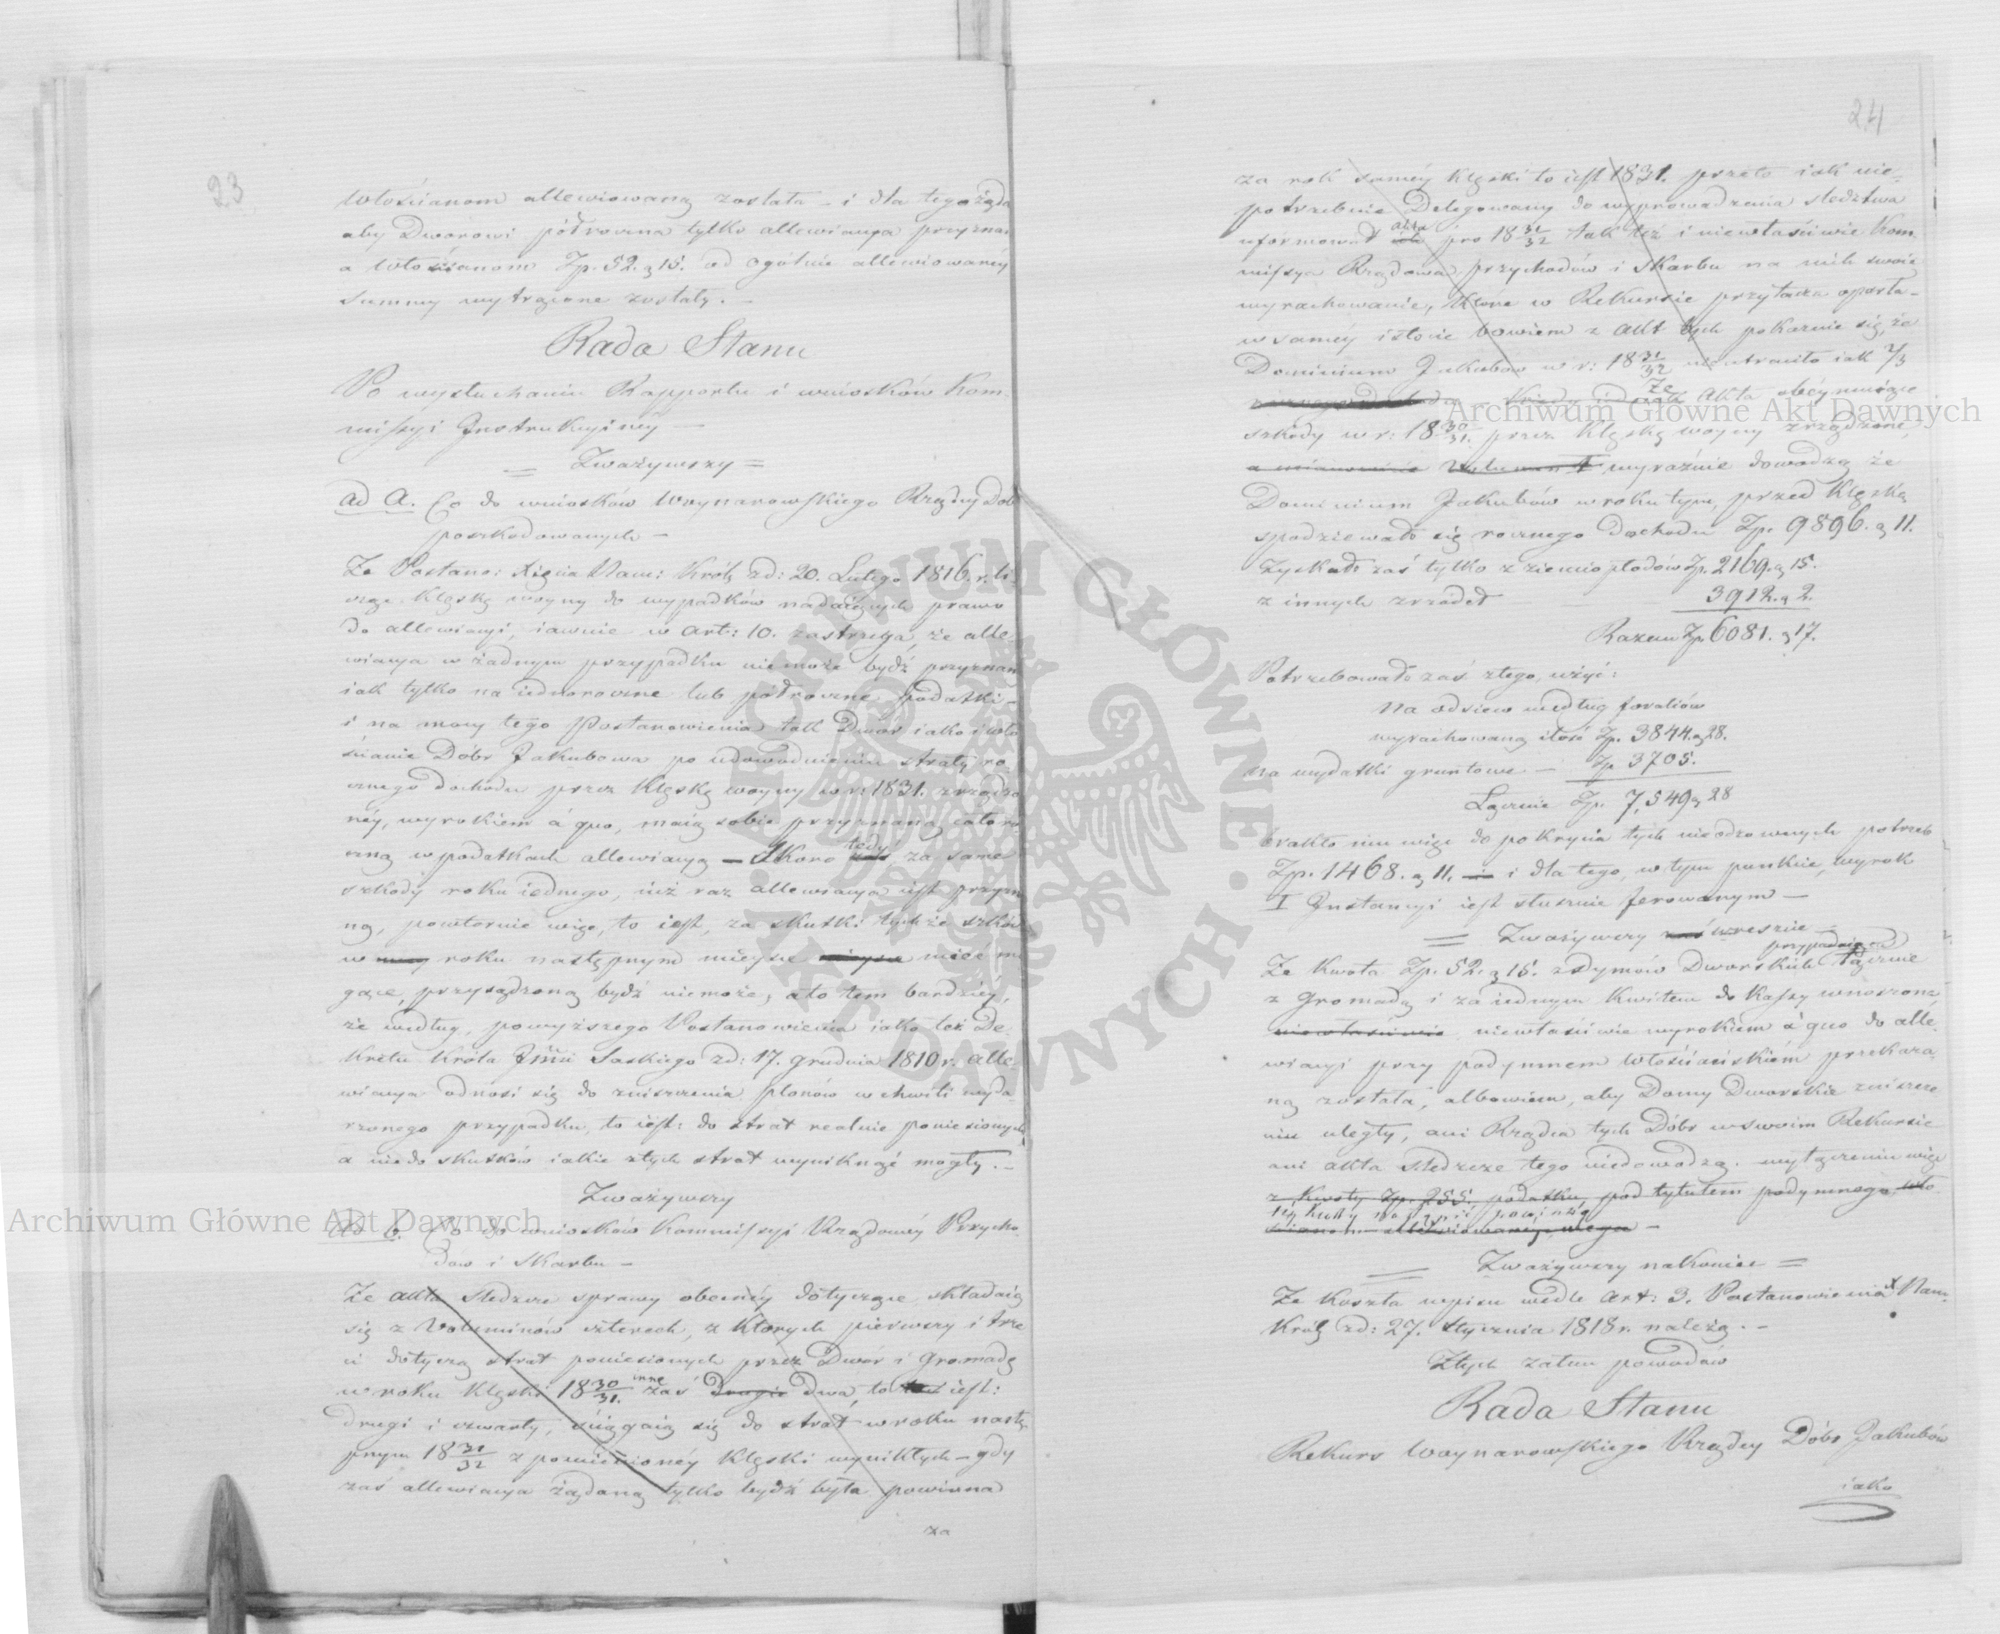 23
włościanom allewiowaną została – i dla tego żąda
aby Dworowi półroczna tylko allewiacya przyznan
a włościanom Zp. 52. g 15. od ogólnie allewiowanéy
summy wytrącone zostały. –
Rada Stanu
Po wysłuchaniu Rapportu i wniosków Kom-
missyi Instrukcyinéy –
= Zważywszy =
ad A. Co do wniosków Woynarowskiego Rządcy Dób
poszkodowanych –
Że Postano: Xięcia Nam: Król: z d: 20. Lutego 1816. r. li
cząc Klęskę woyny do wypadków nadaiących prawo
do allewiacyi, iawnie w art: 10. zastrzega, że alle-
wiacya w żadnym przypadku nie może bydź przyznan
iak tylko na iednoroczne lub półroczne podatki –
i na mocy tego Postanowienia tak Dwór iako i wło
ścianie Dóbr Jakubowa po udowodnieniu straty ro-
cznego dochodu przez Klęskę woyny w r: 1831. zrządzo
néy, wyrokiem à quo, maią sobie przyznaną całoro
czną w podatkach allewiacyą – Skoro tedy za same
szkody roku iednego, iuż raz allewiacya iest przyzna
ną, powtórnie więc, to iest, za skutki tychże szkód
w roku następnym mieysce mieć mo
gące, przysądzoną bydź niemoże, a to tem bardziéy,
że według powyższego Postanowienia iako też De-
kretu Króla Jmci Saskiego z d: 17. Grudnia 1810 r. alle-
wiacya odnosi się do zniszczenia plonów w chwili wyda-
rzonego przypadku, to iest: do strat realnie poniesionych,
a nie do skutków iakie z tych strat wyniknąć mogły. –
Zważywszy
Ad B. Co do wniosków Kommissyi Rządowéy Przycho-
dów i Skarbu –
Że akta śledcze sprawy obecnéy dotyczące składaią
się z Voluminów czterech, z których pierwszy i trze
ci dotyczą strat poniesionych przez Dwór i Gromadę
w roku Klęski 18 30/31. inne zaś drugie dwa, to iest:
drugi i czwarty, ściągaią się do strat w roku nastę-
pnym 18 31/32 z pomienionéy Klęski wynikłych – gdy
zaś allewiacya żądaną tylko bydź była powinna
za
24
za rok saméy Klęski to iest 1831. przeto iak nie-
potrzebnie Delegowany do wyprowadzenia śledztwa
uformował akta pro 18 31/32 tak też i niewłaściwie Kom-
missya Rządowa przychodów i Skarbu na nich swoie
wyrachowanie, które w Rekursie przytacza oparła –
w saméy istocie bowiem z akt tych pokazuie się, że
Dominium Jakubów w r: 18 31/32 utraciło iak 2/3
Że akta obéymuiące
szkody w r: 18 30/31. przez Klęskę woyny zrządzone,
a mianowicie Volumen I wyraźnie dowodzą że
Dominium Jakubów w roku tym, przed Klęską
spodziewało się rocznego Dochodu Zp. 9896. g 11.
Zyskało zaś tylko z ziemiopłodów Zp. 2169. g 15.
z innych zrzódeł 3912. g 2.
Razem Zp. 6081. g 17.
Potrzebowało zaś z tego, użyć:
na odsiew według foraliów
wyrachowaną ilość Zp. 3844. g 28.
na wydatki gruntowe – Zp. 3705.
Łącznie Zp. 7,549 g 28
brakło mu więc do pokrycia tych nieodzownych potrzeb
Zp. 1468. g 11. – i dla tego, w tym punkcie, wyrok
I Instancyi iest słusznie ferowanym –
= Zważywszy wreszcie
Że Kwota Zp. 52. g 15. z dymów Dworskich przypadaiąca łącznie
z gromadą i za iednym kwitem do Kassy wnoszona
niewłaściwie niewłaściwie wyrokiem à quo do alle-
wiacyi przy podymnem włościańskiém przekaza-
ną została, albowiem, aby Domy Dworskie zniszcze
niu uległy, ani Rządca tych Dóbr w swoim Rekursie
ani akta śledcze tego niedowodzą. wyłączeniu więc
z Kwoty Zp. 255. podatku, pod tytułem podymnego, wło
ścianom allewiowanego, ulega –
= Zważywszy nakoniec =
Że Koszta wpisu wedle art: 3. Postanowienia X Nam-
Król: z d: 27. Stycznia 1818 r. należą. –
Z tych zatem powodów
Rada Stanu
Rekurs Woynarowskiego Rządcy Dóbr Jakubów
iako
Archiwum Główne Akt Dawnych
Archiwum Główne Akt Dawnych
ARCHIWUM GŁÓWNE · AKT DAWNYCH ·